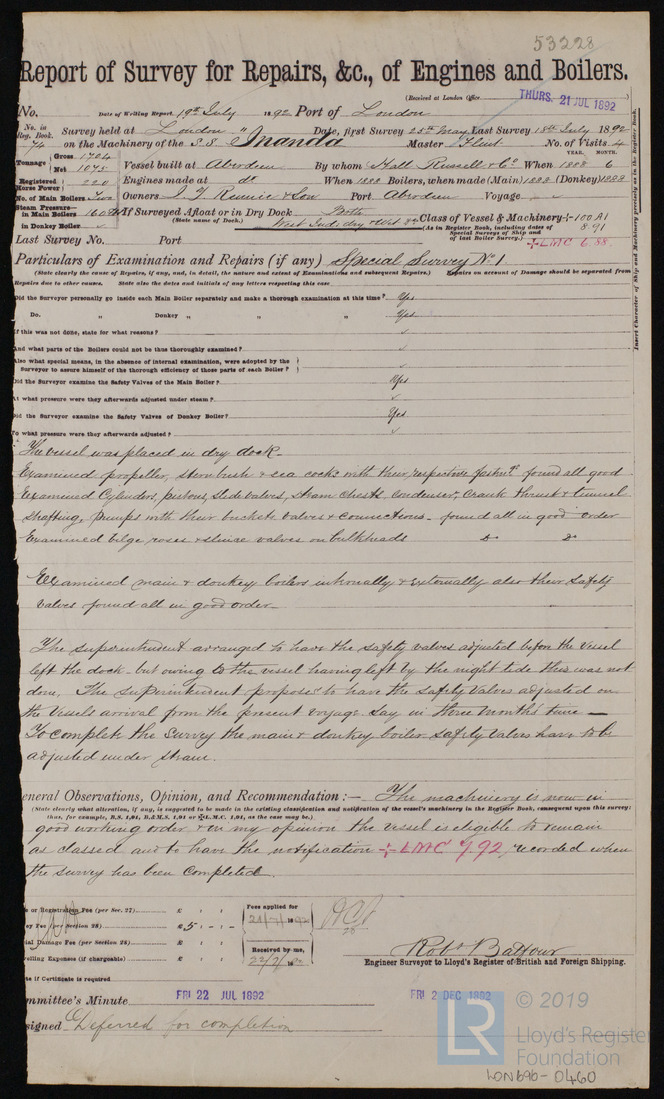 53228
Report of Survey for Repairs, &c., of Engines and Boilers.
(Received at London Office THURS. 21 JUL 1892
No. Date of Writing Report 19th July 1892 Port of London
No. in Reg. Book. Survey held at London Date, first Survey 28th May Last Survey 18th July 1892
74 on the Machinery of the S.S. "Inanda" Master Flint No. of Visits 4
YEAR. MONTH.
Tonnage Gross 1764 Net 1075 Vessel built at Aberdeen By whom Hall Russell & Co. When 1888 6
Registered Horse Power 220 Engines made at do When 1888 Boilers, when made (Main) 1888 (Donkey) 1888
No. of Main Boilers Two Owners J. T. Rennie & Son Port Aberdeen Voyage
Steam Pressure in Main Boilers 160 lb If Surveyed Afloat or in Dry Dock Both Class of Vessel & Machinery 100 A1
in Donkey Boiler (State name of Dock.) West India Dock (As in Register Book, including dates of Special Surveys of Ship and of last Boiler Survey.) 8.91
Last Survey No. Port LMC 6.88.
Insert Character of Ship and Machinery precisely as in the Register Book.
Particulars of Examination and Repairs (if any) Special Survey No. 1
(State clearly the cause of Repairs, if any, and, in detail, the nature and extent of Examinations and subsequent Repairs.) Repairs on account of Damage should be separated from
Repairs due to other causes. State also the dates and initials of any letters respecting this case
Did the Surveyor personally go inside each Main Boiler separately and make a thorough examination at this time? Yes
Do. „ Donkey „ „ „ Yes
If this was not done, state for what reasons?
And what parts of the Boilers could not be thus thoroughly examined?
Also what special means, in the absence of internal examination, were adopted by the
Surveyor to assure himself of the thorough efficiency of those parts of each Boiler?
Did the Surveyor examine the Safety Valves of the Main Boiler? Yes
At what pressure were they afterwards adjusted under steam?
Did the Surveyor examine the Safety Valves of Donkey Boiler? Yes
To what pressure were they afterwards adjusted?
The vessel was placed in dry dock.
Examined propeller, stern bush & sea cocks with their respective fastngs found all good
Examined Cylinders, pistons, slide valves, steam chests, condenser, crank thrust & tunnel
shafting, pumps with their buckets valves & connections - found all in good order
Examined bilge roses & sluice valves on bulkheads do do
Examined main & donkey boilers internally & externally also their safety
valves found all in good order
The Superintendent arranged to have the safety valves adjusted before the vessel
left the dock - but owing to the vessel having left by the night tide this was not
done. The Superintendent proposes to have the safety valves adjusted on
the vessels arrival from the present voyage say in three months time —
To complete the survey the main & donkey boiler safety valves have to be
adjusted under steam.
eneral Observations, Opinion, and Recommendation :— The machinery is now in
(State clearly what alteration, if any, is suggested to be made in the existing classification and notification of the vessel's machinery in the Register Book, consequent upon this survey;
thus, for example, B.S. 1,91, B.&M.S. 1,91 or L.M.C. 1,91, as the case may be.)
good working order & in my opinion the vessel is eligible to remain
as classed and to have the notification LMC 7.92 recorded when
the survey has been completed
or Registration Fee (per Sec. 27) £ : :
ey Fee (per Section 28) £5 : - : -
ial Damage Fee (per Section 28) £ : :
velling Expenses (if chargeable) £ : :
Fees applied for 21/7/1892
Received by me, 22/7/1892
Robt Balfour
Engineer Surveyor to Lloyd's Register of British and Foreign Shipping.
te if Certificate is required
mmittee's Minute FRI 22 JUL 1892 FRI 2 DEC 1892
signed Deferred for completion
LR © 2019
Lloyd's Register
Foundation
LON696-0460